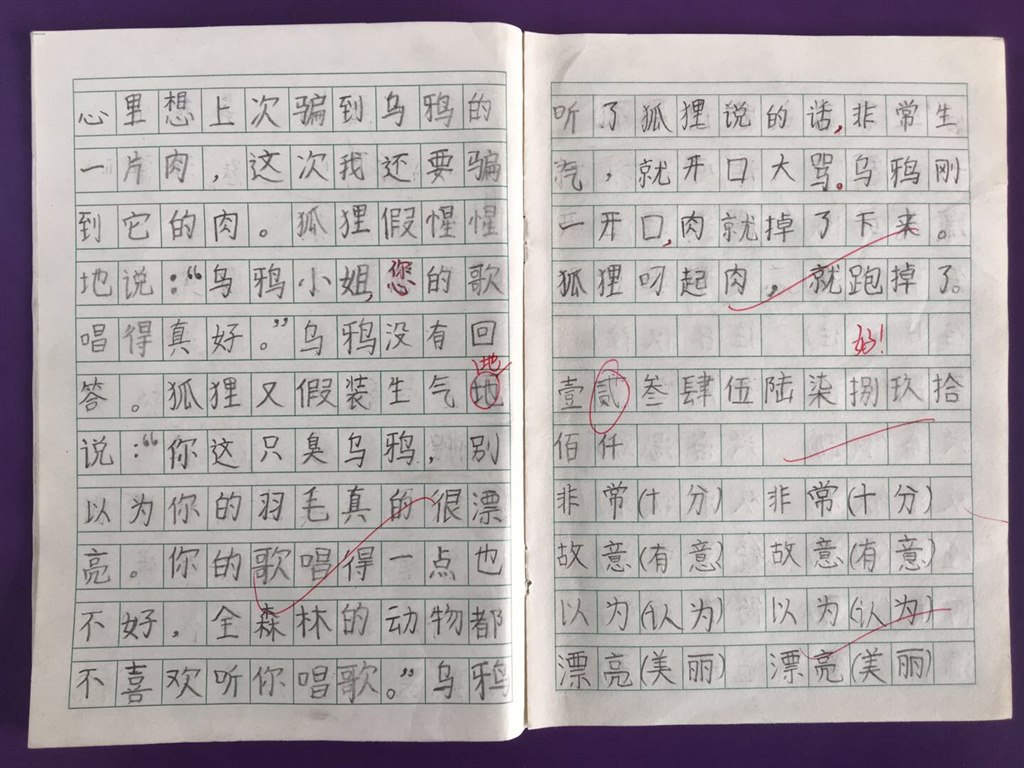 心里想上次骗到乌鸦的
一片肉，这次我还要骗
到它的肉。狐狸假惺惺
地说：“乌鸦小姐，您的歌
唱得真好。”乌鸦没有回
地
答。狐狸又假装生气地
说：“你这只臭乌鸦，别
以为你的羽毛真的很漂
亮。你的歌唱得一点也
不好，全森林的动物都
不喜欢听你唱歌。”乌鸦
听了狐狸说的话，非常生
汽，就开口大骂。乌鸦刚
一开口，肉就掉了下来。
狐狸叼起肉，就跑掉了。
好！
壹贰叁肆伍陆柒捌玖拾
佰仟
非常(十分) 非常(十分)
故意(有意) 故意(有意)
以为(认为) 以为(认为)
漂亮(美丽) 漂亮(美丽)